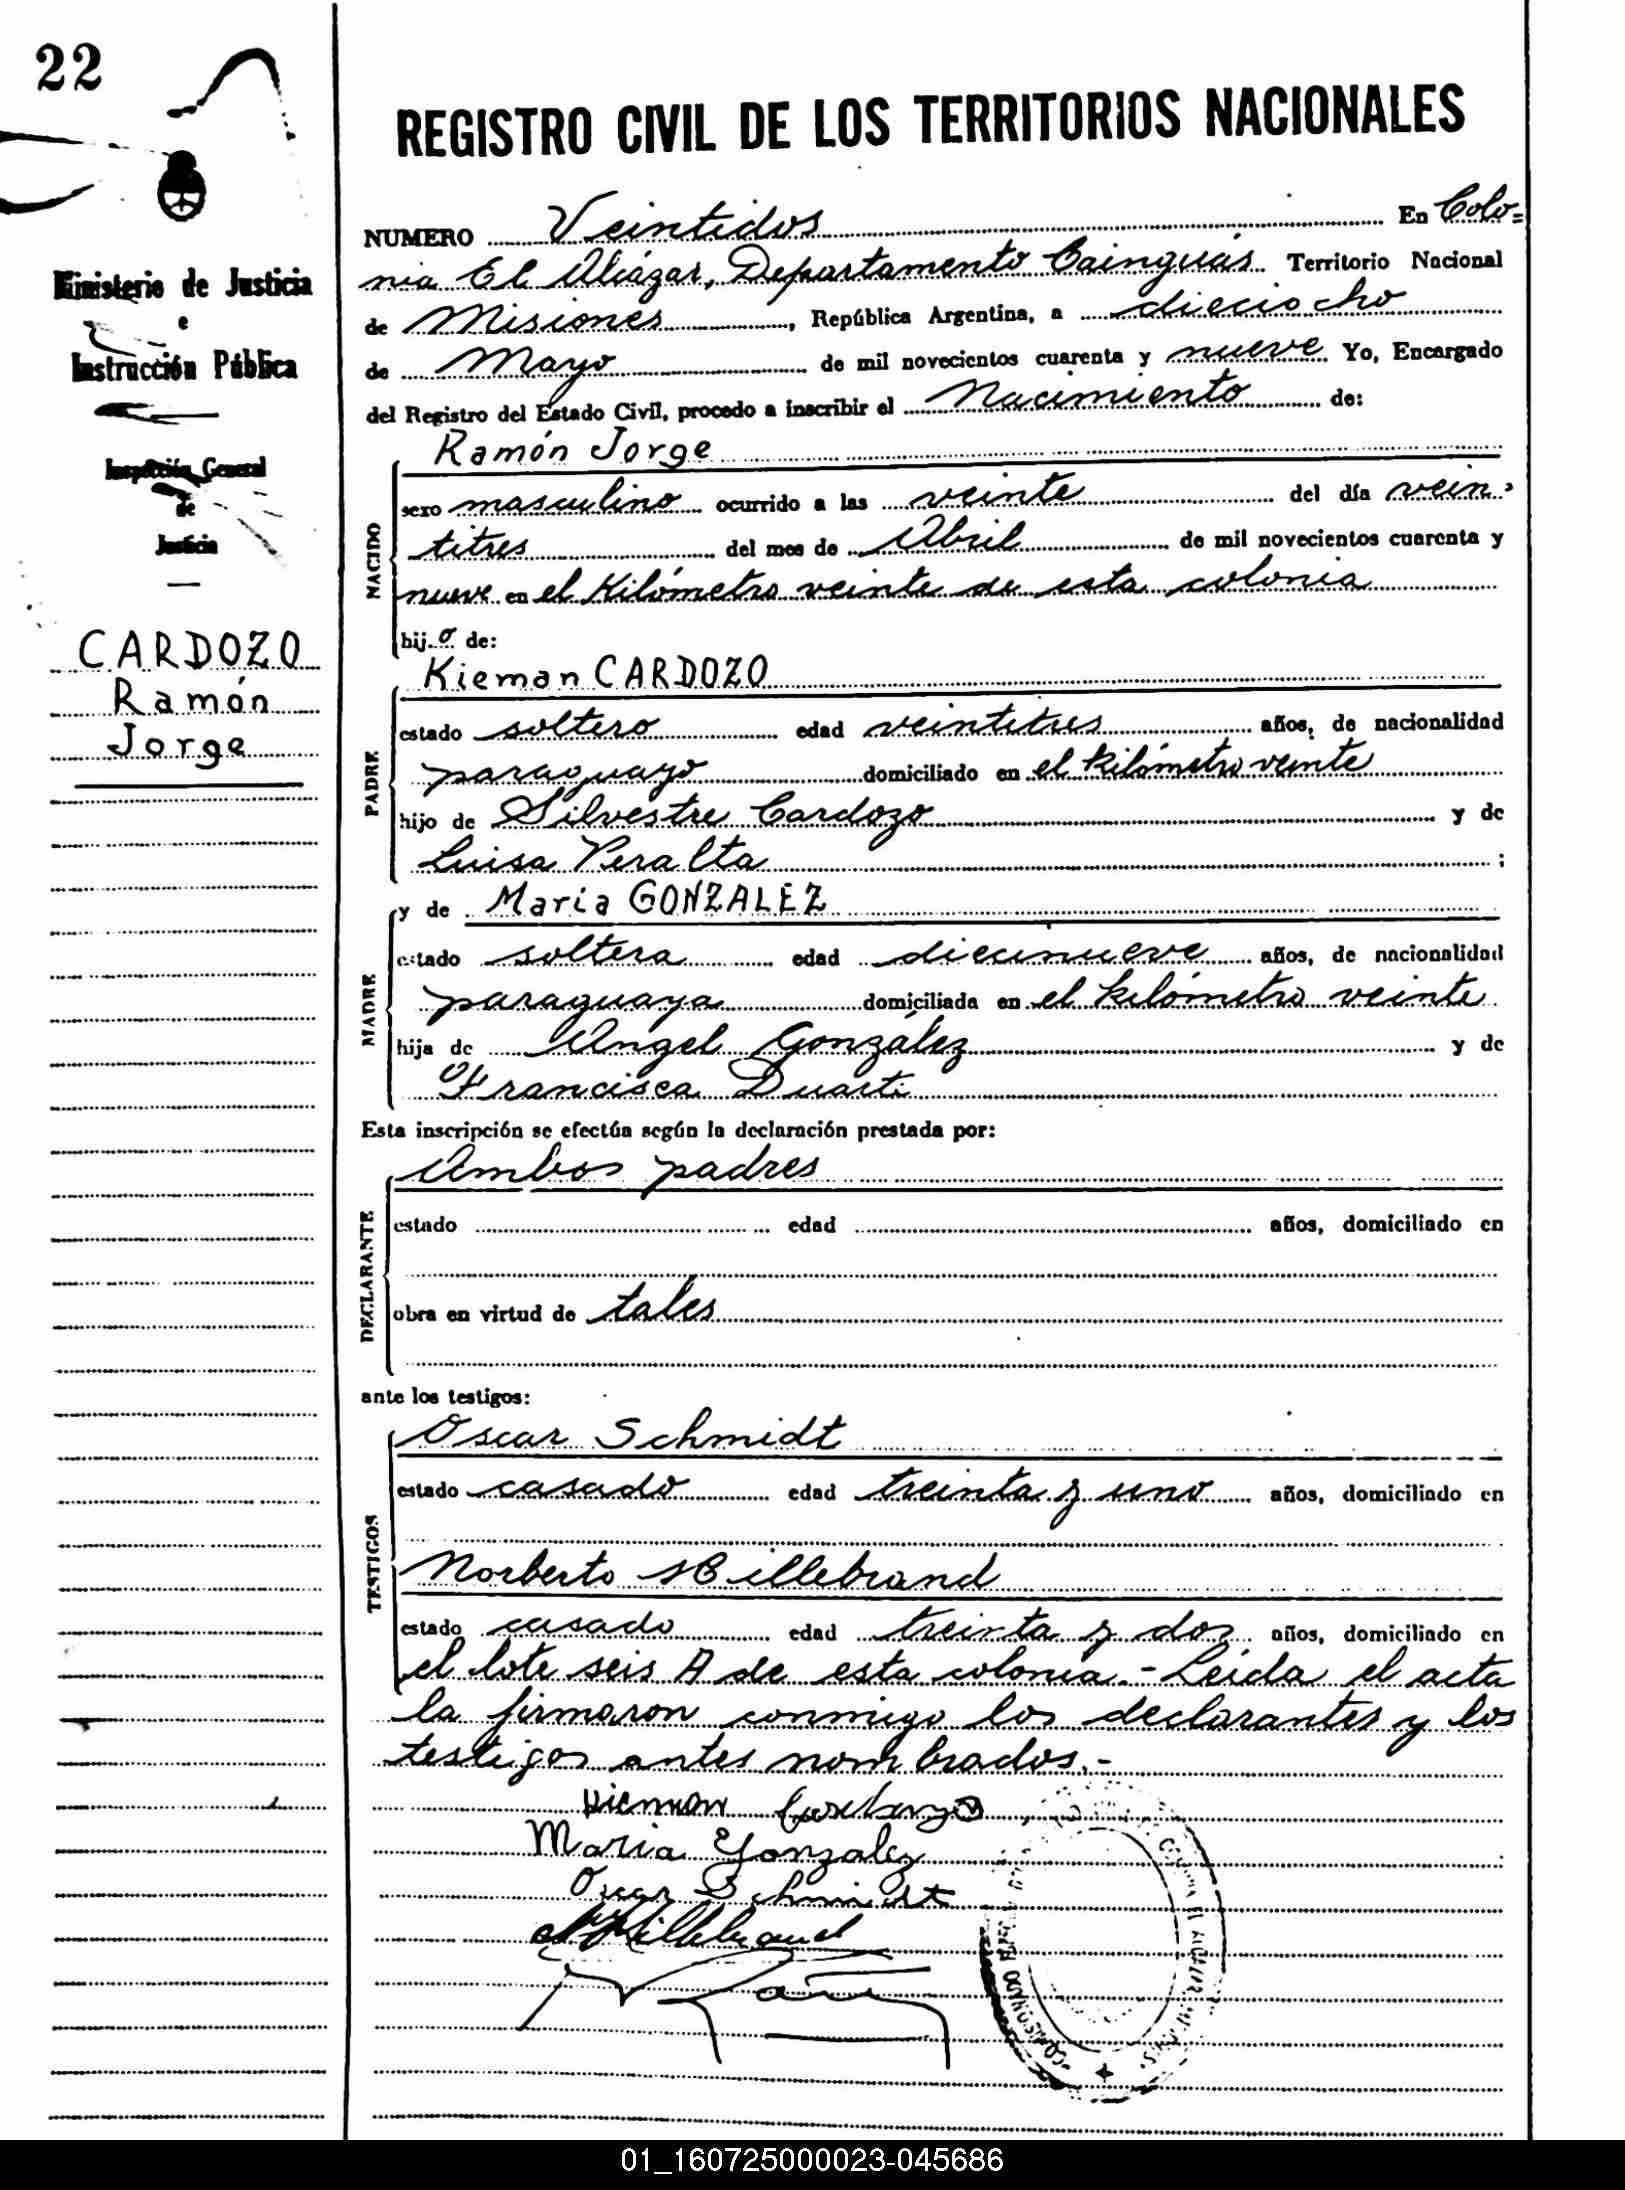 22
REGISTRO CIVIL DE LOS TERRITORIOS NACIONALES
NUMERO Veintidos En Colo=
nia El Alcázar, Departamento Cainguás Territorio Nacional
de Misiones, República Argentina, a dieciocho
de Mayo de mil novecientos cuarenta y nueve Yo, Encargado
del Registro del Estado Civil, procedo a inscribir el Nacimiento de:
Ministerio de Justicia
e
Instrucción Pública
Inspección General
de
Justicia
CARDOZO
Ramón
Jorge
NACIDO
Ramón Jorge
sexo masculino ocurrido a las veinte del día vein-
titres del mes de Abril de mil novecientos cuarenta y
nueve en el Kilómetro veinte de esta colonia
hij o de:
PADRE
Kieman CARDOZO
estado soltero edad veintitres años, de nacionalidad
paraguayo domiciliado en el kilómetro veinte
hijo de Silvestre Cardozo y de
Luisa Peralta ;
MADRE
y de Maria GONZALEZ
estado soltera edad diecinueve años, de nacionalidad
paraguaya domiciliada en el kilómetro veinte
hija de Angel González y de
Francisca Duarte
Esta inscripción se efectúa según la declaración prestada por:
DECLARANTE
Ambos padres
estado edad años, domiciliado en
obra en virtud de tales
ante los testigos:
TESTIGOS
Oscar Schmidt
estado casado edad treinta y uno años, domiciliado en
Norberto Hillebrand
estado casado edad treinta y dos años, domiciliado en
el lote seis A de esta colonia.- Leída el acta
la firmaron conmigo los declarantes y los
testigos antes nombrados.-
Maria Gonzalez
Oscar Schmidt
Hillebrand
01_160725000023-045686